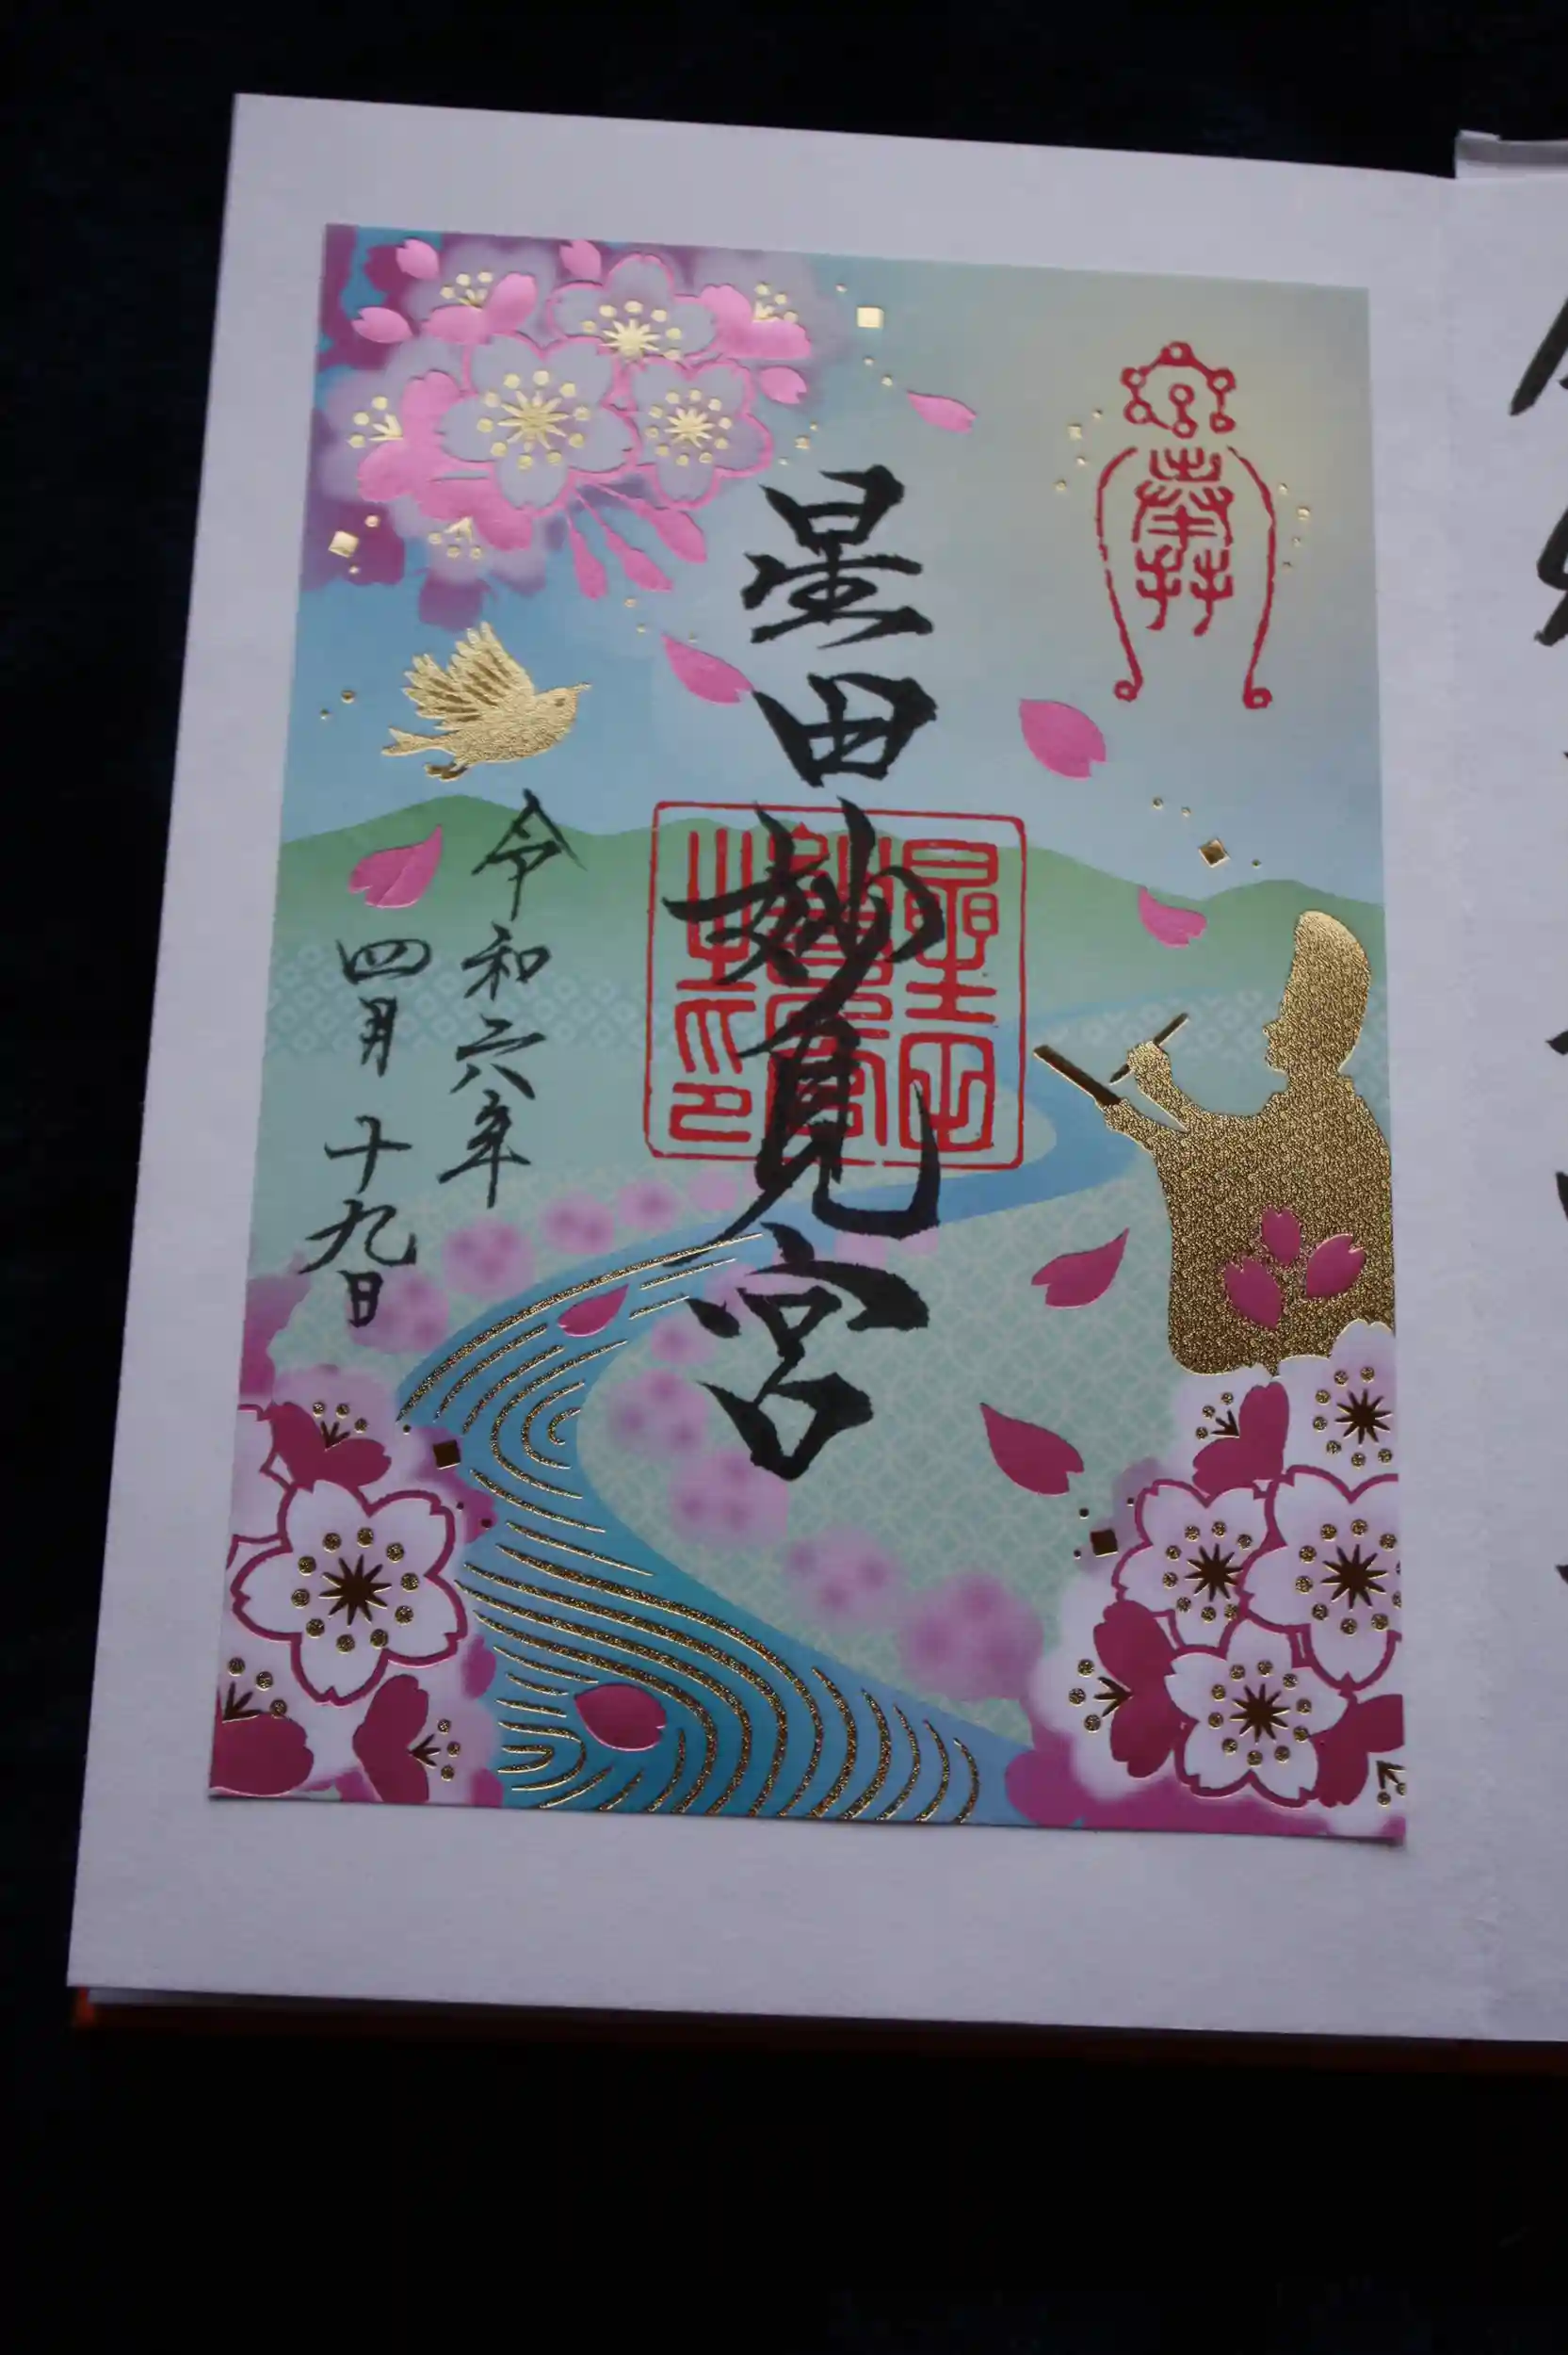 奉拝
星田妙見宮
星田妙見宮之印
令和六年
四月十九日